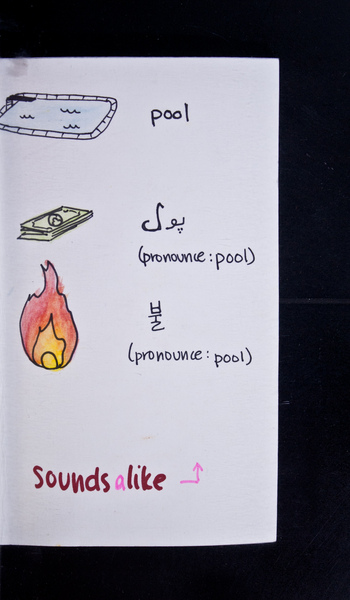 pool
پول
(pronounce: pool)
불
(pronounce: pool)
Sounds alike